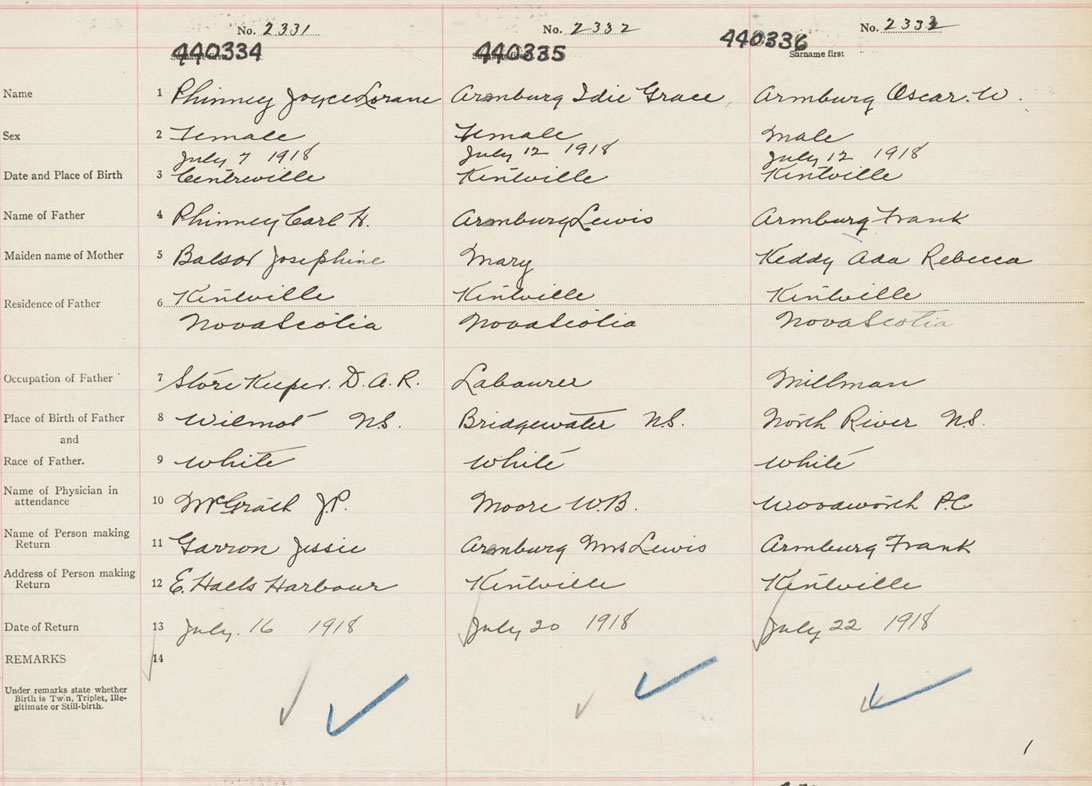 No. 2331 No. 2332 No. 2333
440334 440335 440336
Surname first
Name 1 Phinney Joyce Lorane Aremburg Idie Grace, Armburg Oscar. W.
Sex 2 Female Female Male
July 7 1918 July 12 1918 July 12 1918
Date and Place of Birth 3 Centreville Kentville Kentville
Name of Father 4 Phinney Carl H. Aremburg Lewis Armburg Frank
Maiden name of Mother 5 Balsor Josephine Mary Keddy Ada Rebecca
Residence of Father 6 Kentville Kentville Kentville
Nova Scotia Nova Scotia Nova Scotia
Occupation of Father 7 Store Keeper. D. A. R. Labourer Millman
Place of Birth of Father 8 Wilmot N.S. Bridgewater N.S. North River N.S.
and
Race of Father. 9 White White White
Name of Physician in
attendance 10 McGrath J.P. Moore W.B. Woodworth P.C
Name of Person making
Return 11 Garron Jessie Aremburg Mrs Lewis Armburg Frank
Address of Person making
Return 12 E. Halls Harbour Kentville Kentville
Date of Return 13 July. 16 1918 July 20 1918 July 22 1918
REMARKS 14
Under remarks state whether
Birth is Twin, Triplet, Ille-
gitimate or Still-birth.
1